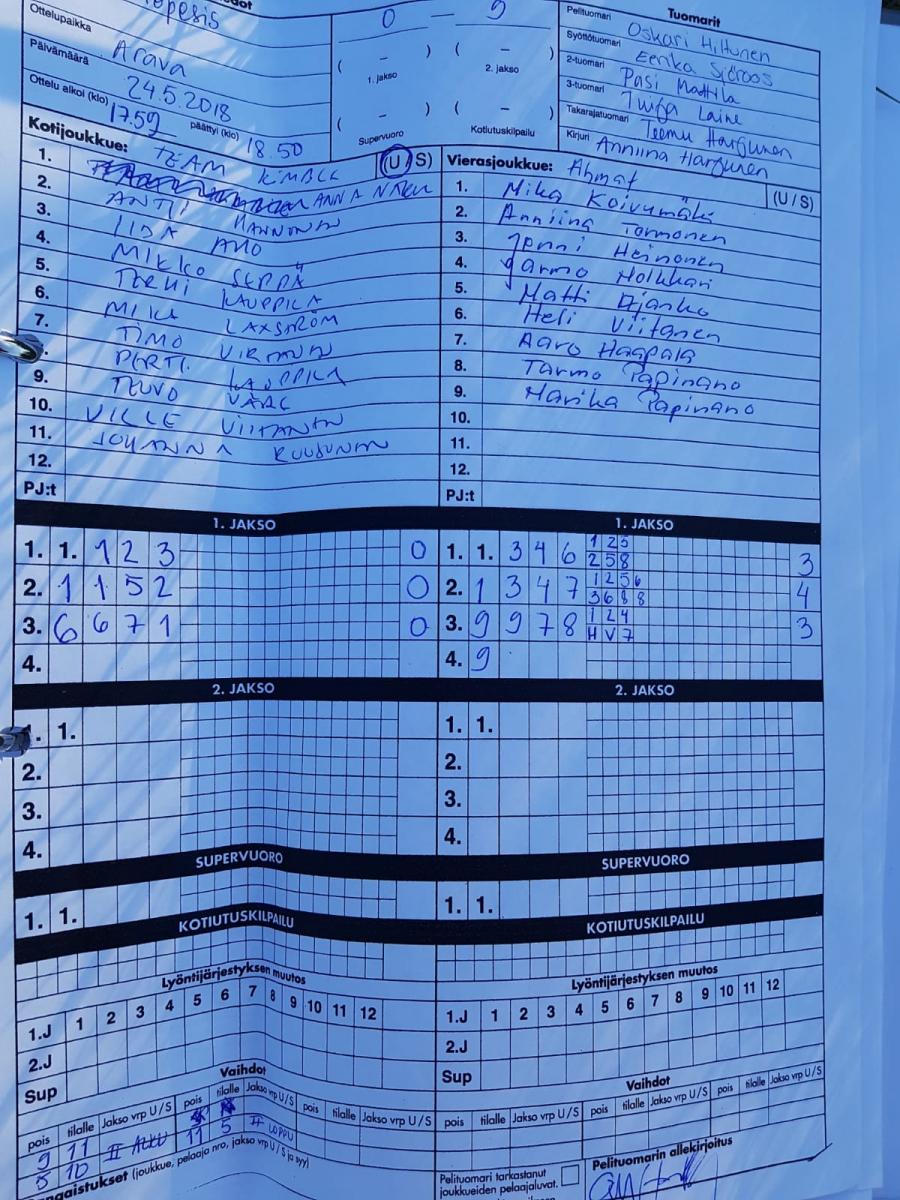 Tuomarit
0 – 9
Ottelupaikka
Arava
Päivämäärä
24.5.2018
Ottelu alkoi (klo) 17.59 päättyi (klo) 18.50
( – ) ( – )
1. jakso 2. jakso
( – ) ( – )
Supervuoro Kotiutuskilpailu
Pelituomari Oskari Hiltunen
Syöttötuomari Eerika Sjöroos
2-tuomari Pasi Mattila
3-tuomari Tuija Laine
Takarajatuomari Teemu Harjunen
Kirjuri Anniina Harjunen
Kotijoukkue: TEAM KIMBLE (U/S)
1. ANNA
2. ANTTI HANNONEN
3. IIDA AHO
4. MIKKO SEPPÄ
5. TERHI KAUPPILA
6. MIKA LAXSTRÖM
7. TIMO VIRTANEN
PERTTI KAUPPILA
9. TEUVO
10. VILLE VIITANEN
11. JOHANNA RUUSUNEN
12.
PJ:t
Vierasjoukkue: Ahmat (U/S)
1. Mika Koivumäki
2. Anniina Tormonen
3. Jenni Heinonen
4. Jarmo Holkkari
5. Matti Ojanko
6. Heli Viitanen
7. Aaro Haapala
8. Tarmo Papinaho
9. Marika Papinaho
10.
11.
12.
PJ:t
1. JAKSO
1. 1. 1 2 3 0
2. 1 1 5 2 0
3. 6 6 7 1 0
4.
1. JAKSO
1. 1. 3 4 6 1 2 5 3
2 5 8
2. 1 3 4 7 1 2 5 6 4
3 6 8 8
3. 9 9 7 8 1 2 4 3
H V 7
4. 9
2. JAKSO
1. 1.
2.
3.
4.
2. JAKSO
1. 1.
2.
3.
4.
SUPERVUORO
1. 1.
SUPERVUORO
1. 1.
KOTIUTUSKILPAILU
KOTIUTUSKILPAILU
Lyöntijärjestyksen muutos
1.J 1 2 3 4 5 6 7 8 9 10 11 12
2.J
Sup
Lyöntijärjestyksen muutos
1.J 1 2 3 4 5 6 7 8 9 10 11 12
2.J
Sup
Vaihdot
pois tilalle Jakso vrp U/S pois tilalle Jakso vrp U/S pois tilalle Jakso vrp U/S
9 11
10 II ALKU 11 5 II LOPPU
Vaihdot
pois tilalle Jakso vrp U/S pois tilalle Jakso vrp U/S pois tilalle Jakso vrp U/S
(joukkue, pelaaja nro, jakso vrp U/S ja syy)
Pelituomari tarkastanut
joukkueiden pelaajaluvat.
Pelituomarin allekirjoitus